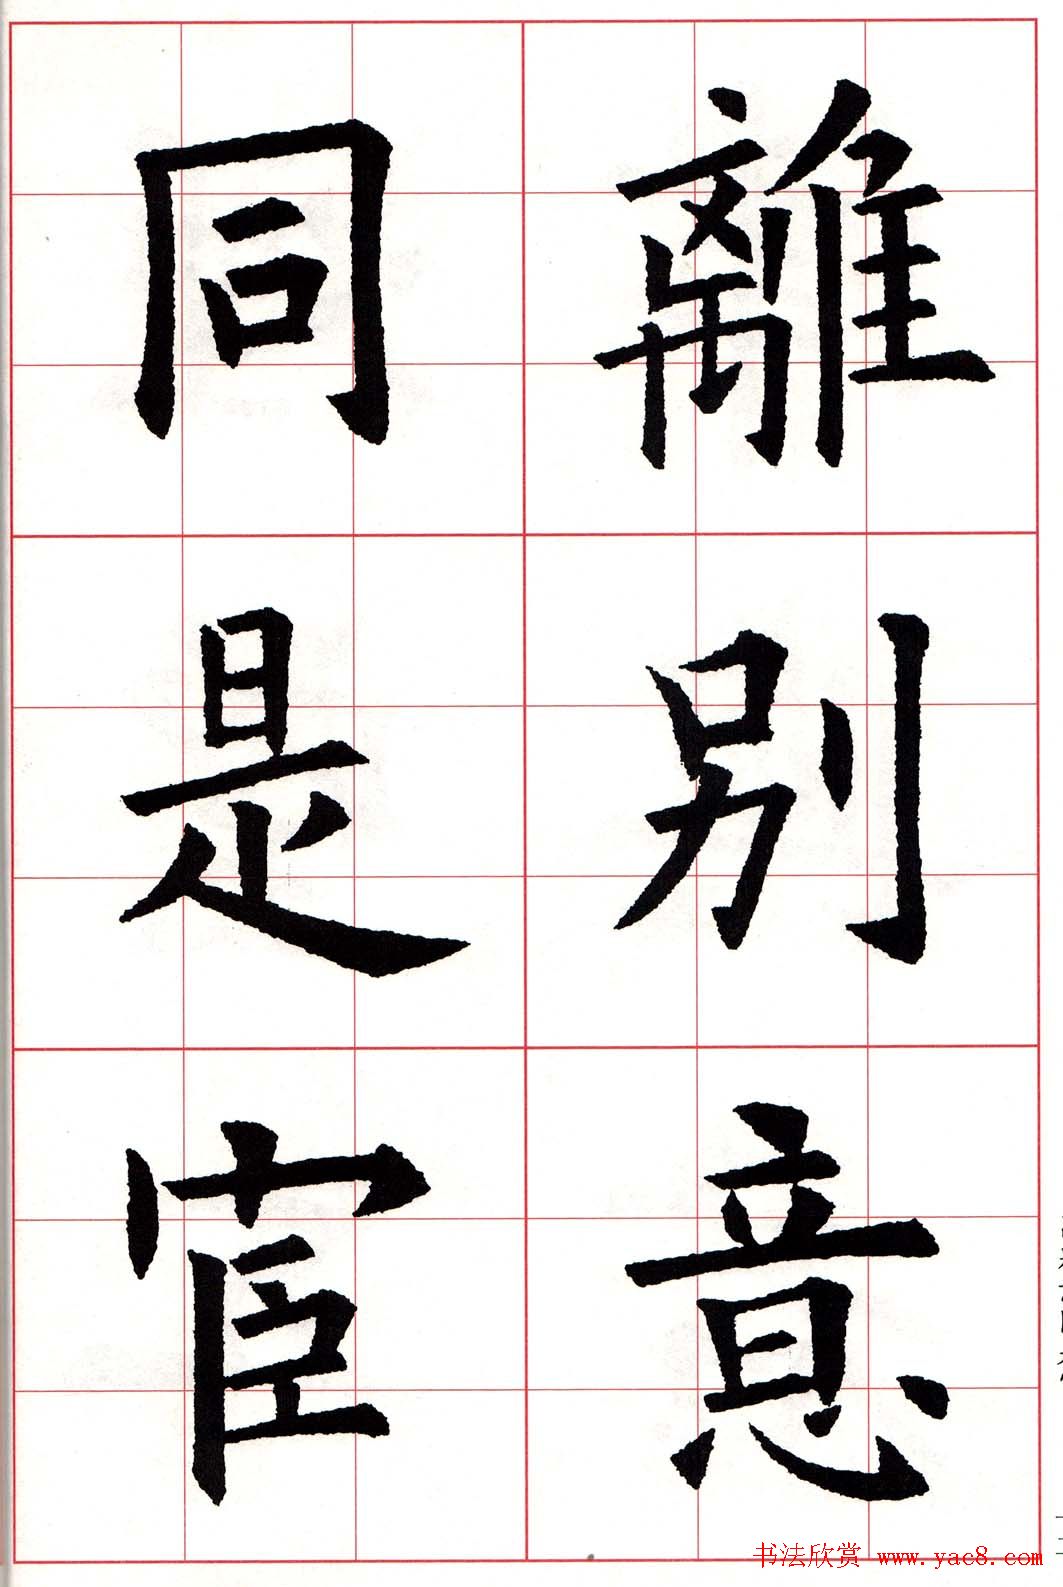 離別意
同是宦
书法欣赏 www.yac8.com